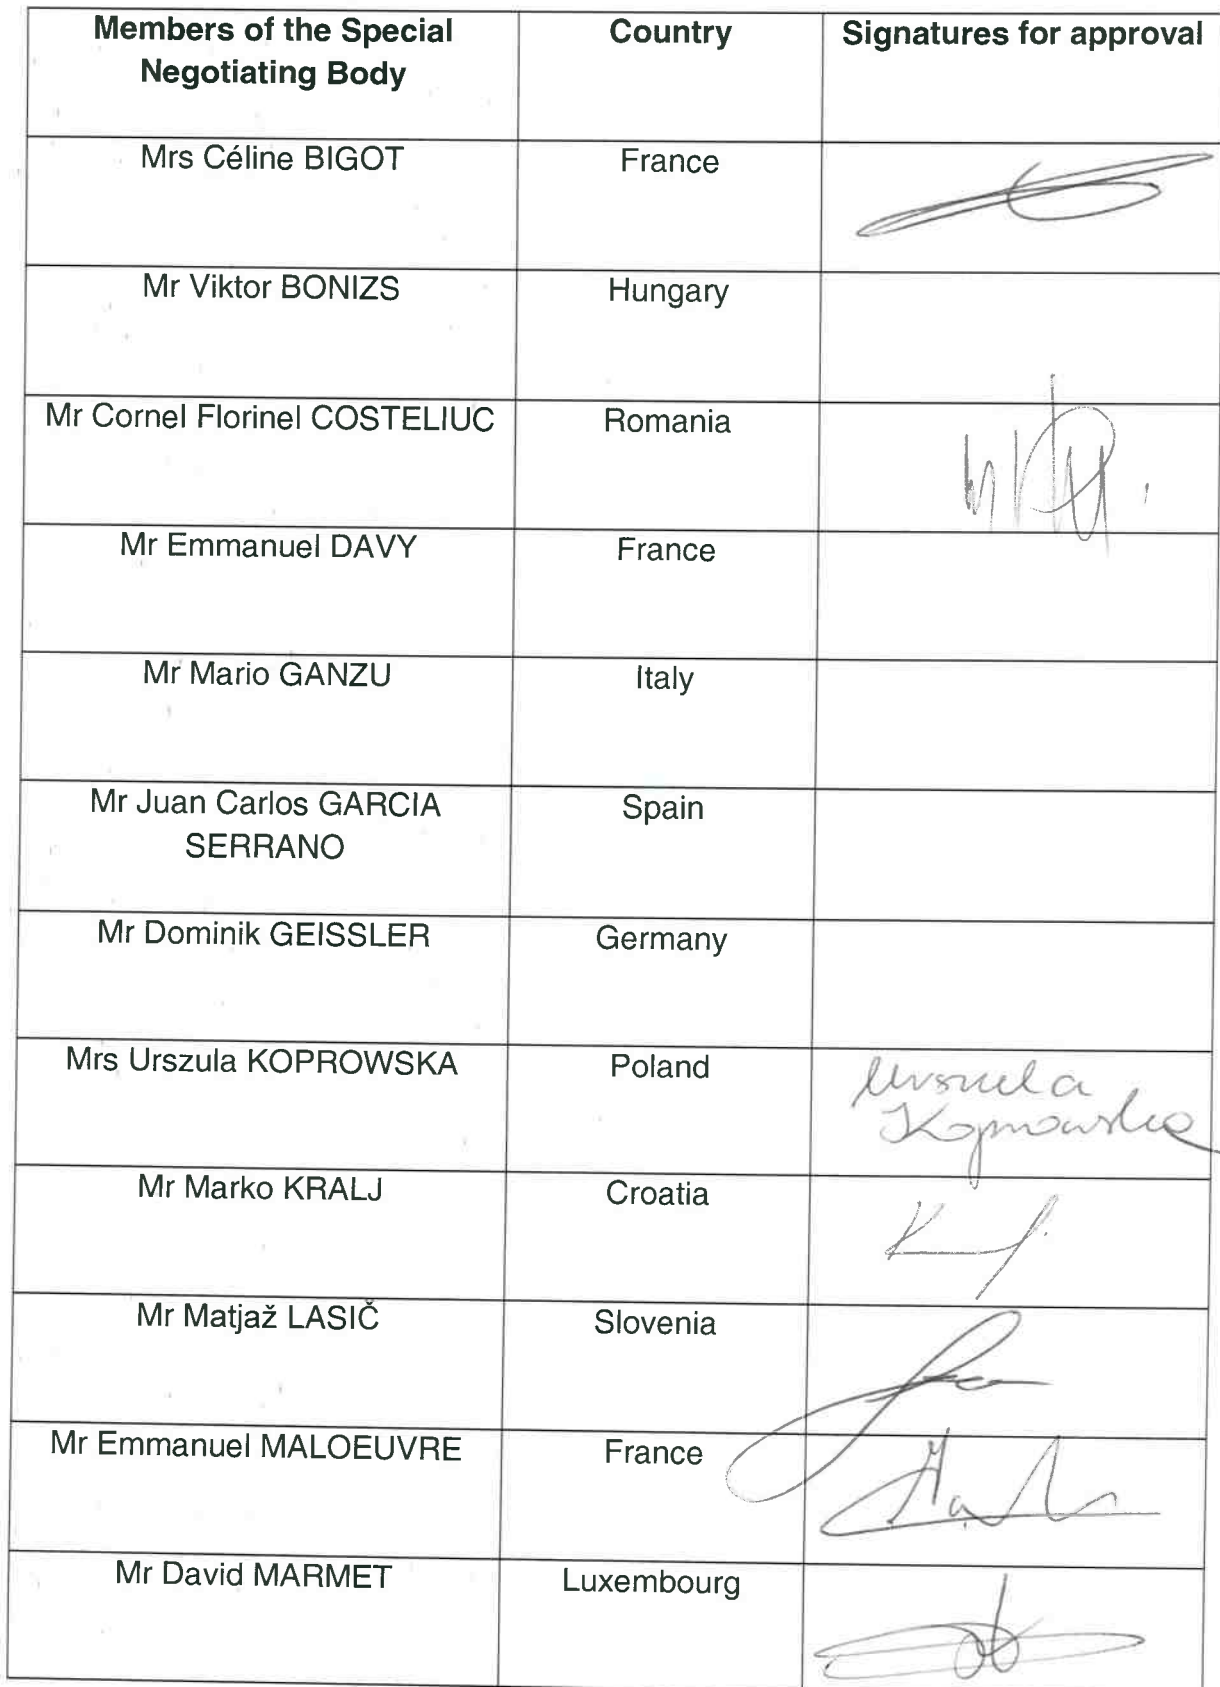 Members of the Special Negotiating Body
Country
Signatures for approval
Mrs Céline BIGOT
France
Mr Viktor BONIZS
Hungary
Mr Cornel Florinel COSTELIUC
Romania
Mr Emmanuel DAVY
France
Mr Mario GANZU
Italy
Mr Juan Carlos GARCIA
SERRANO
Spain
Mr Dominik GEISSLER
Germany
Mrs Urszula KOPROWSKA
Poland
Urszula
Koprowska
Mr Marko KRALJ
Croatia
Mr Matjaž LASIČ
Slovenia
Mr Emmanuel MALOEUVRE
France
Mr David MARMET
Luxembourg